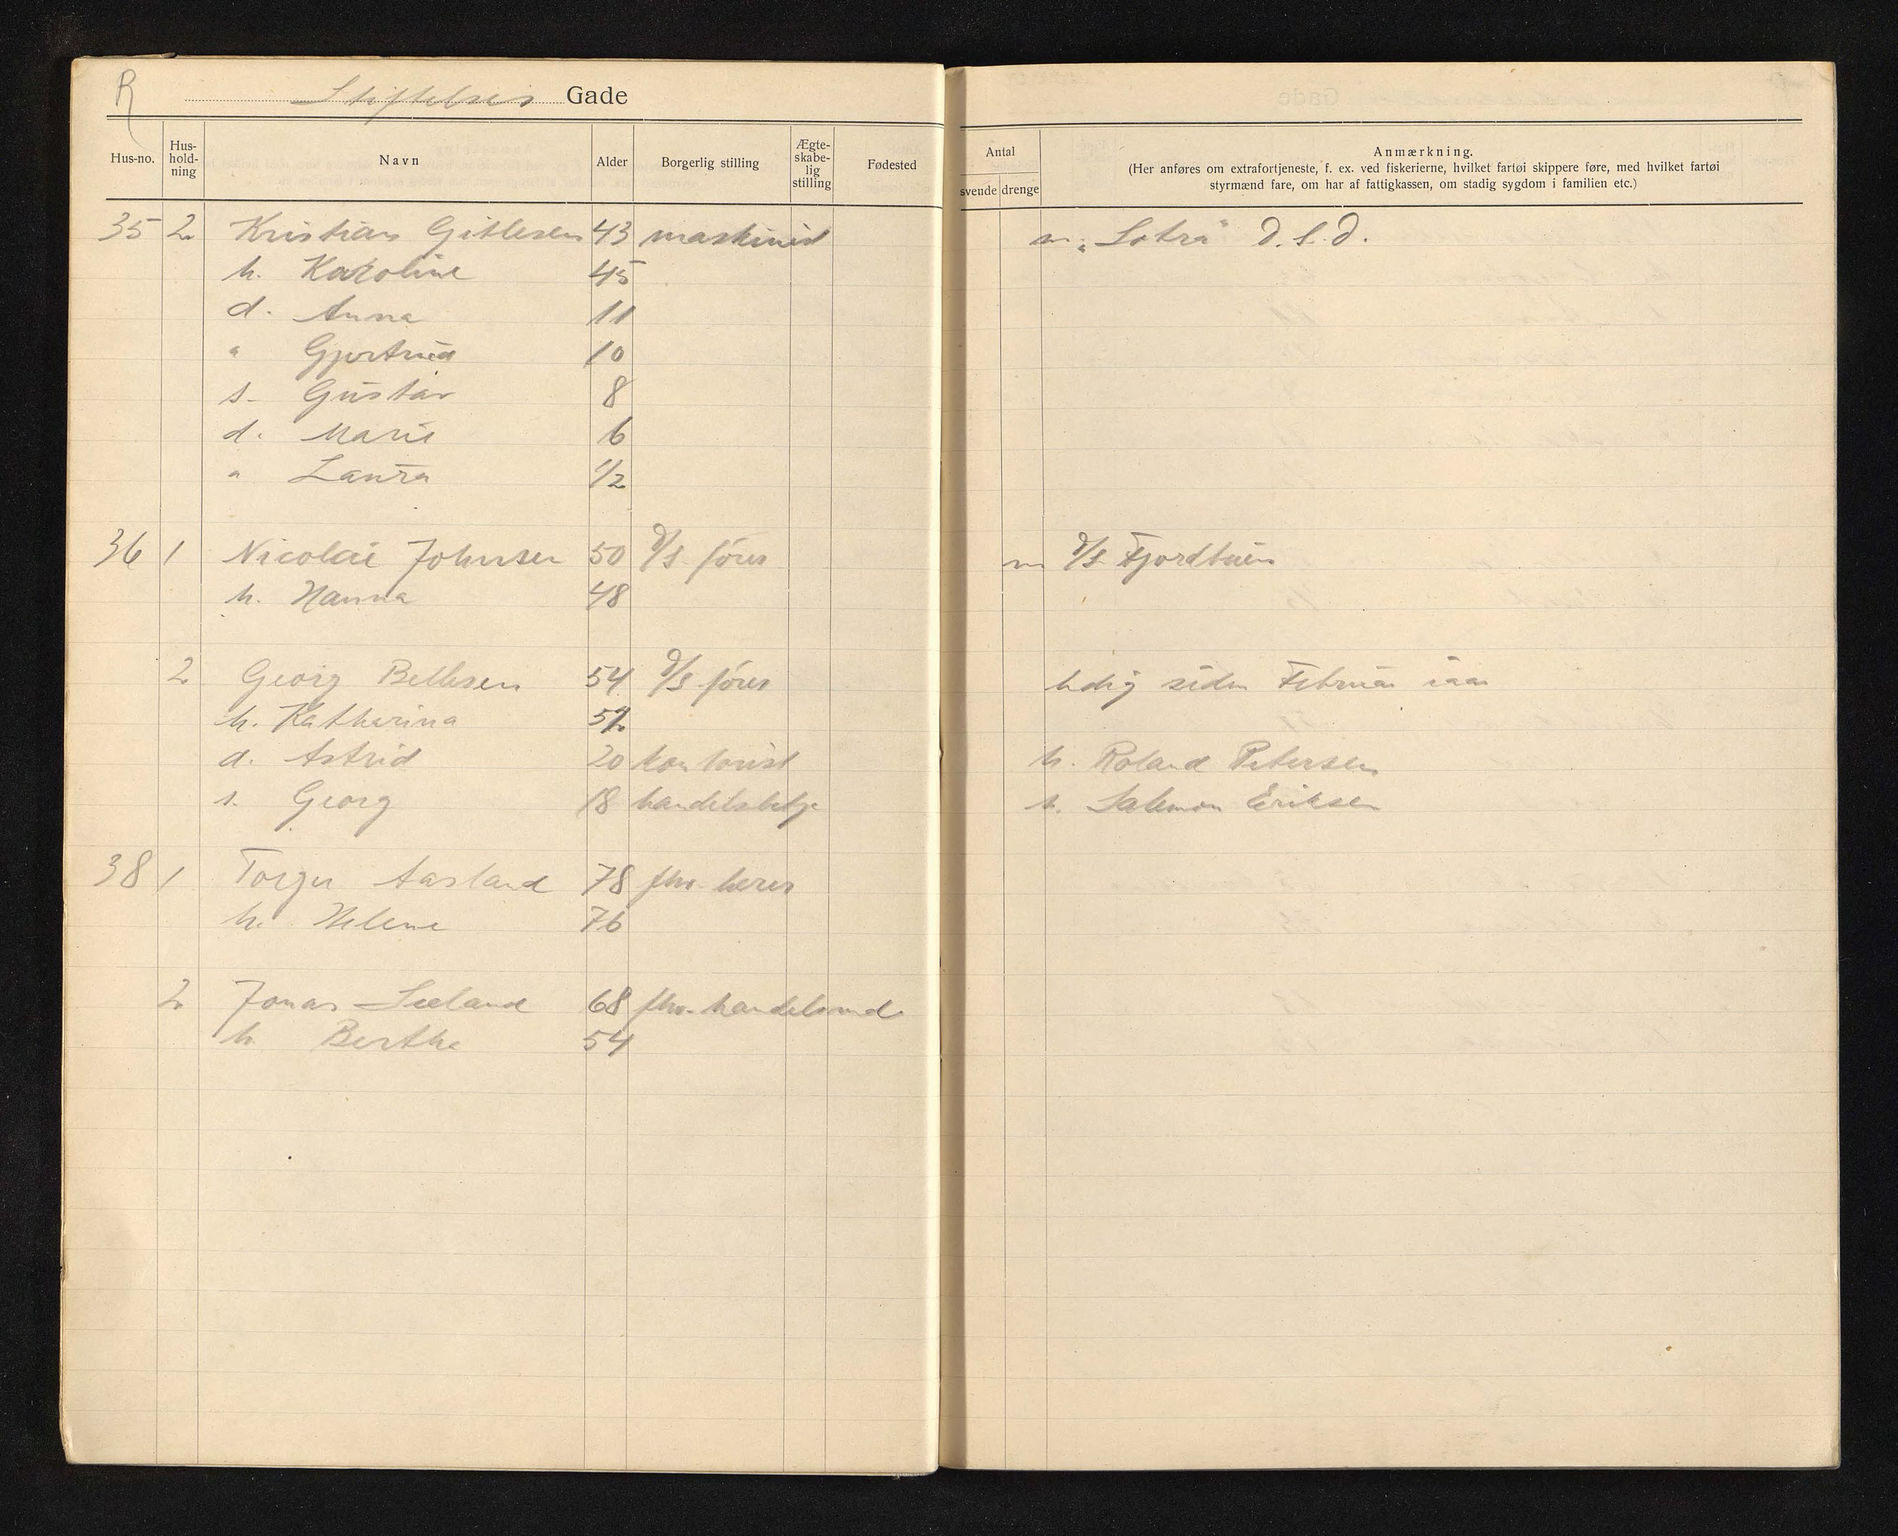 R
Stiftelses Gade
Hus-no. Hus-hold-ning Navn Alder Borgerlig stilling Ægte-skabe-lig stilling Fødested
Antal svende drenge Anmærkning.
(Her anføres om extrafortjeneste, f. ex. ved fiskerierne, hvilket fartøi skippere føre, med hvilket fartøi
styrmænd fare, om har af fattigkassen, om stadig sygdom i familien etc.)
35 2 Kristian Gitlesen 43 maskinist m „Sotra" D. S. D.
h. Karoline 45
d. Anna 11
" Gjertrud 10
s. Gustav 8
d. Marie 6
" Laura 1/2
36 1 Nicolai Johnsen 50 D/S fører m D/S Fjordbuen
h. Hanna 48
2 Georg Bellesen 54 D/S fører ledig siden Februar iaar
h. Katharina
d. Astrid 20 kontorist h. Roland Petersen
s. Georg 18 handelsbetj. h. Salemon Eriksen
38 1 Torger Aasland 78 fhv. lærer
h. Helene 76
2 Jonas Sæland 68 fhv. handelsmd
h. Berthe 54